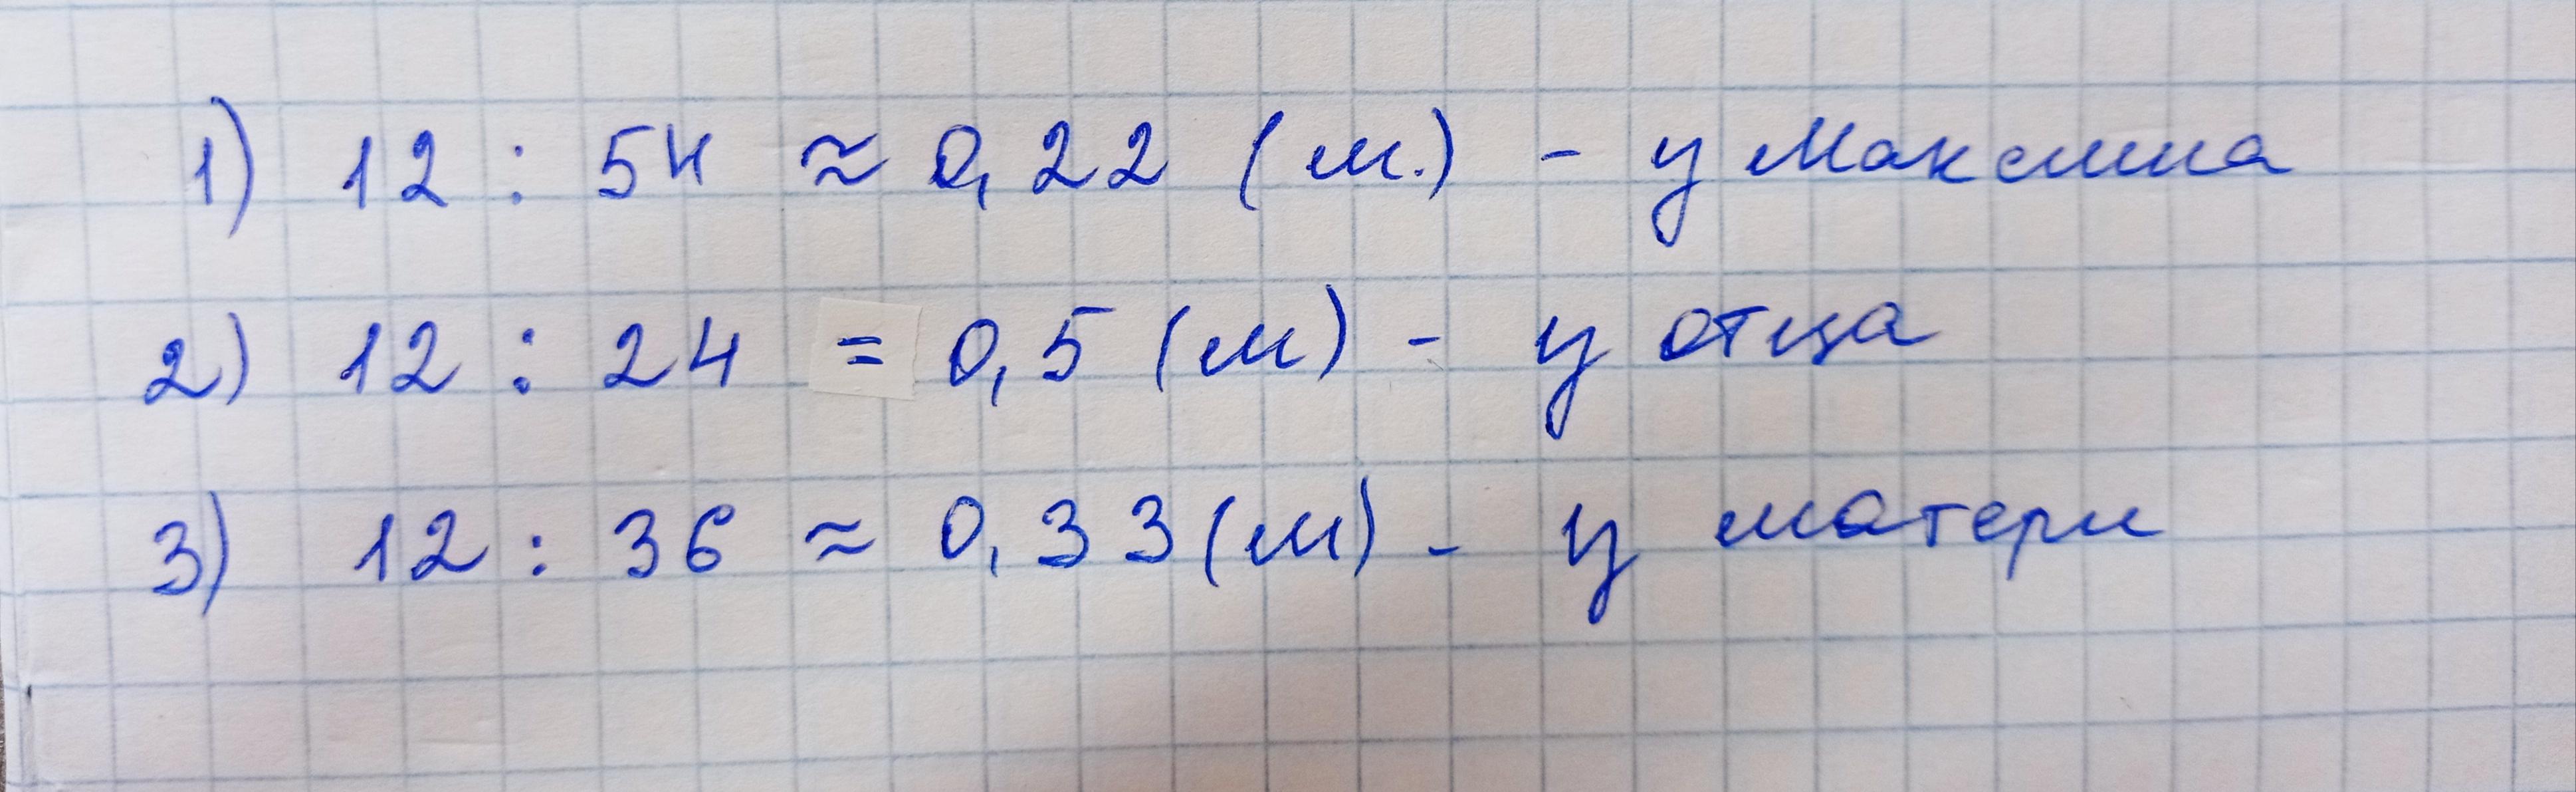 1) 12 : 54 ≈ 0,22 (м.) - у Максима
2) 12 : 24 = 0,5 (м) - у отца
3) 12 : 36 ≈ 0,33 (м) - у матери